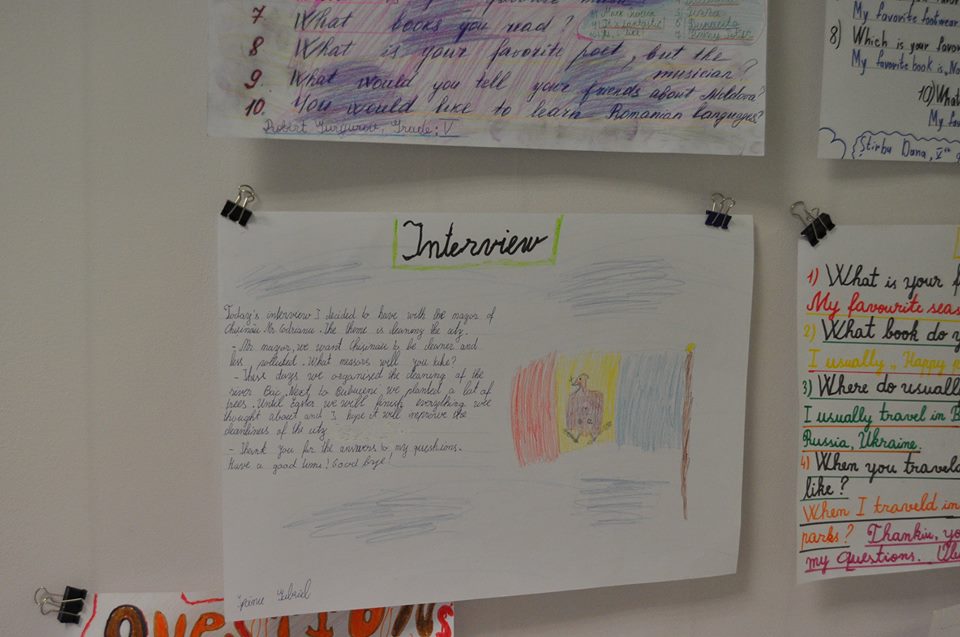 7 What books you read?
8 What is your favorite poet, but the musician?
9 What would you tell your friends about Moldova?
10. You would like to learn Romanian languages?
Robert Grade: V
My favorite footwear
8) Which is your favor
My favorite book is, No
10) What
My fav
Știrbu Dana, Vth g
Interview
Today's interview I decided to have with the mayor of
Chisinau Mr. The theme is cleaning the city.
- Mr mayor, we want Chisinau to be cleaner and
less polluted. What measures will you take?
- These days we organised the cleaning of the
river Bac. Next to Bubuieci we planted a lot of
trees. Until Easter we will finish everything we
thought about and I hope it will improve the
cleanliness of the city
- Thank you for the answers to my questions.
Have a good time! Good bye!
Gabriel
1) What is your f
My favourite seas
2) What book do y
I usually ,, Happy
3) Where do usuall
I usually travel in B
Russia, Ukraine.
4) When you travel
like?
When I traveld in
parks? Thankiu, yo
my questions.
QUESTIONS